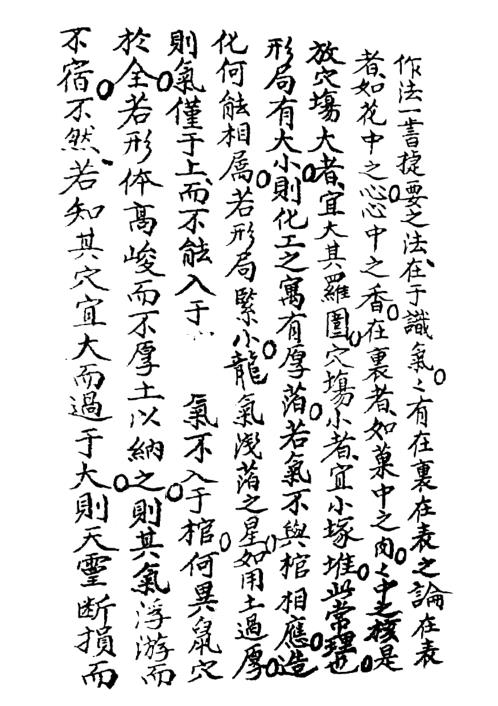 作法一書捷要之法、在于識氣々。有在裏在表之論在表
者如花中之心。心中之香。在裏者如菓中之肉。々中之核是
放穴塲大者、宜大其羅圍。穴塲小者、宜小塚堆。此常理也。
形局有大小。則化工之寓有厚薄。若氣不與棺相應。造
化何能相屬。若形局緊小。龍氣淺薄之星。如用土過厚。
則氣僅于上、而不能入于 氣不入于棺。何異鼠穴
於全。若形体高峻而不厚土以納之。則其氣浮游而
不宿。不然、若知其穴宜大而過于大則天靈断損而